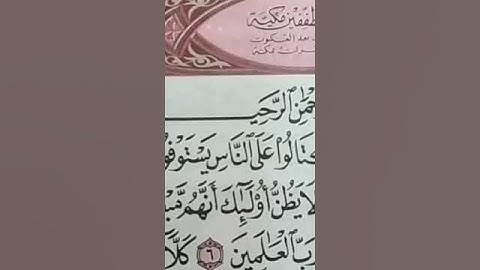 طففين مكية
بعد العنكبوت
حمن الرحيـ
ـكتالوا على الناس يستوفو
لا يظن أولئك أنهم مبـ
رب العالمين ٦ كلا